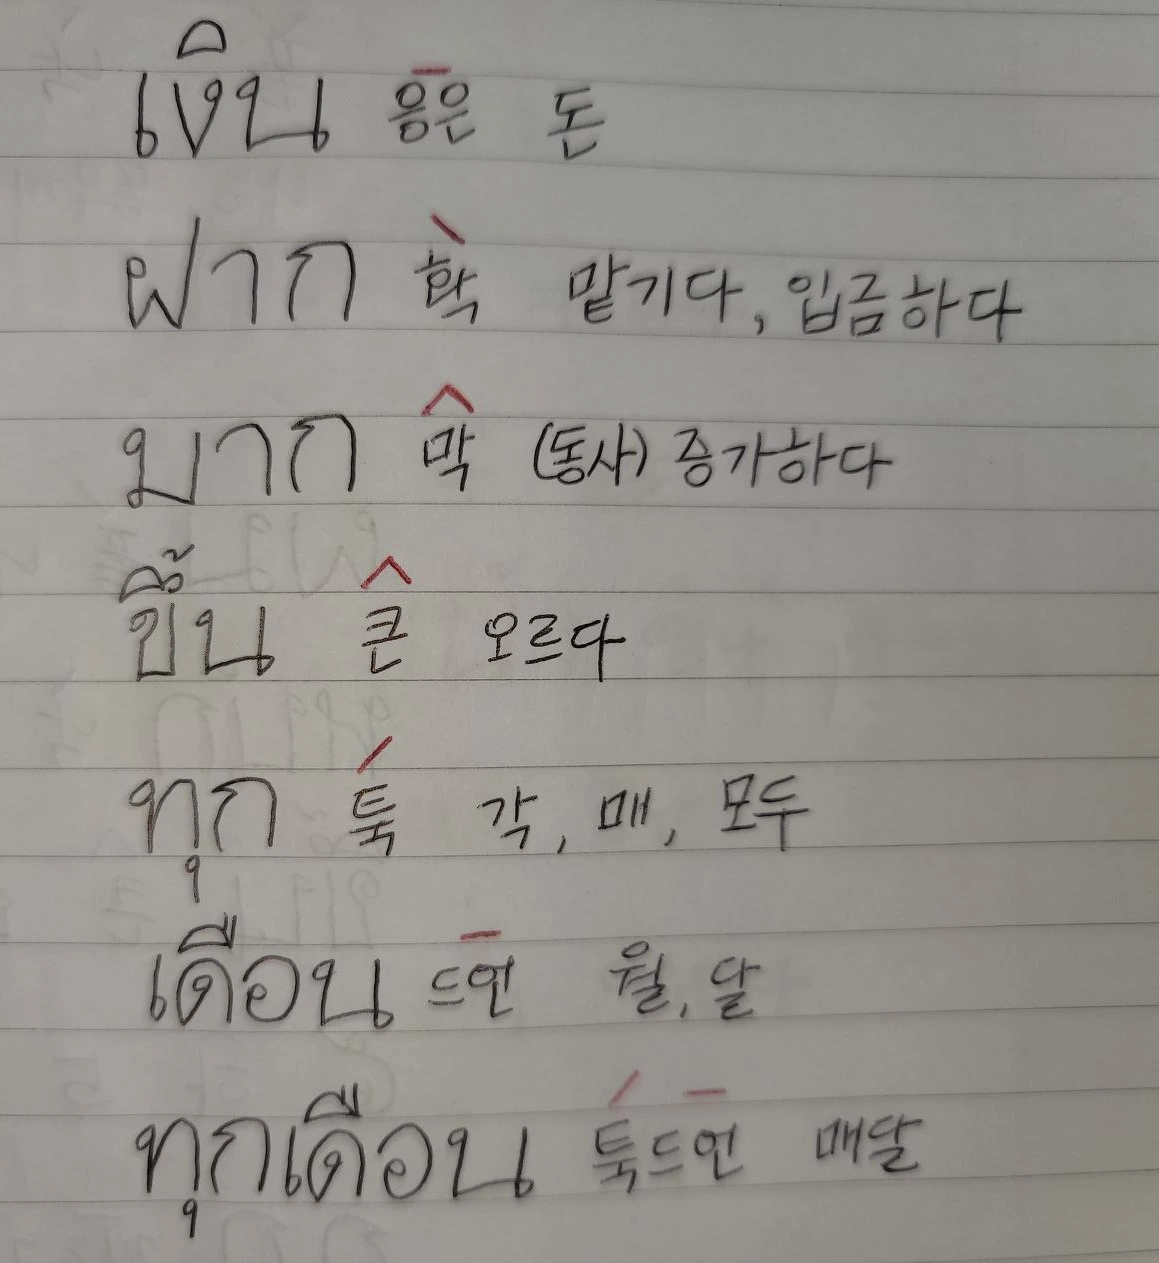 เงิน 응은 돈
ฝาก 학 맡기다, 입금하다
มาก 막 (동사) 증가하다
ขึ้น 큰 오르다
ทุก 툭 각, 매, 모두
เดือน 드언 월, 달
ทุกเดือน 툭드언 매달